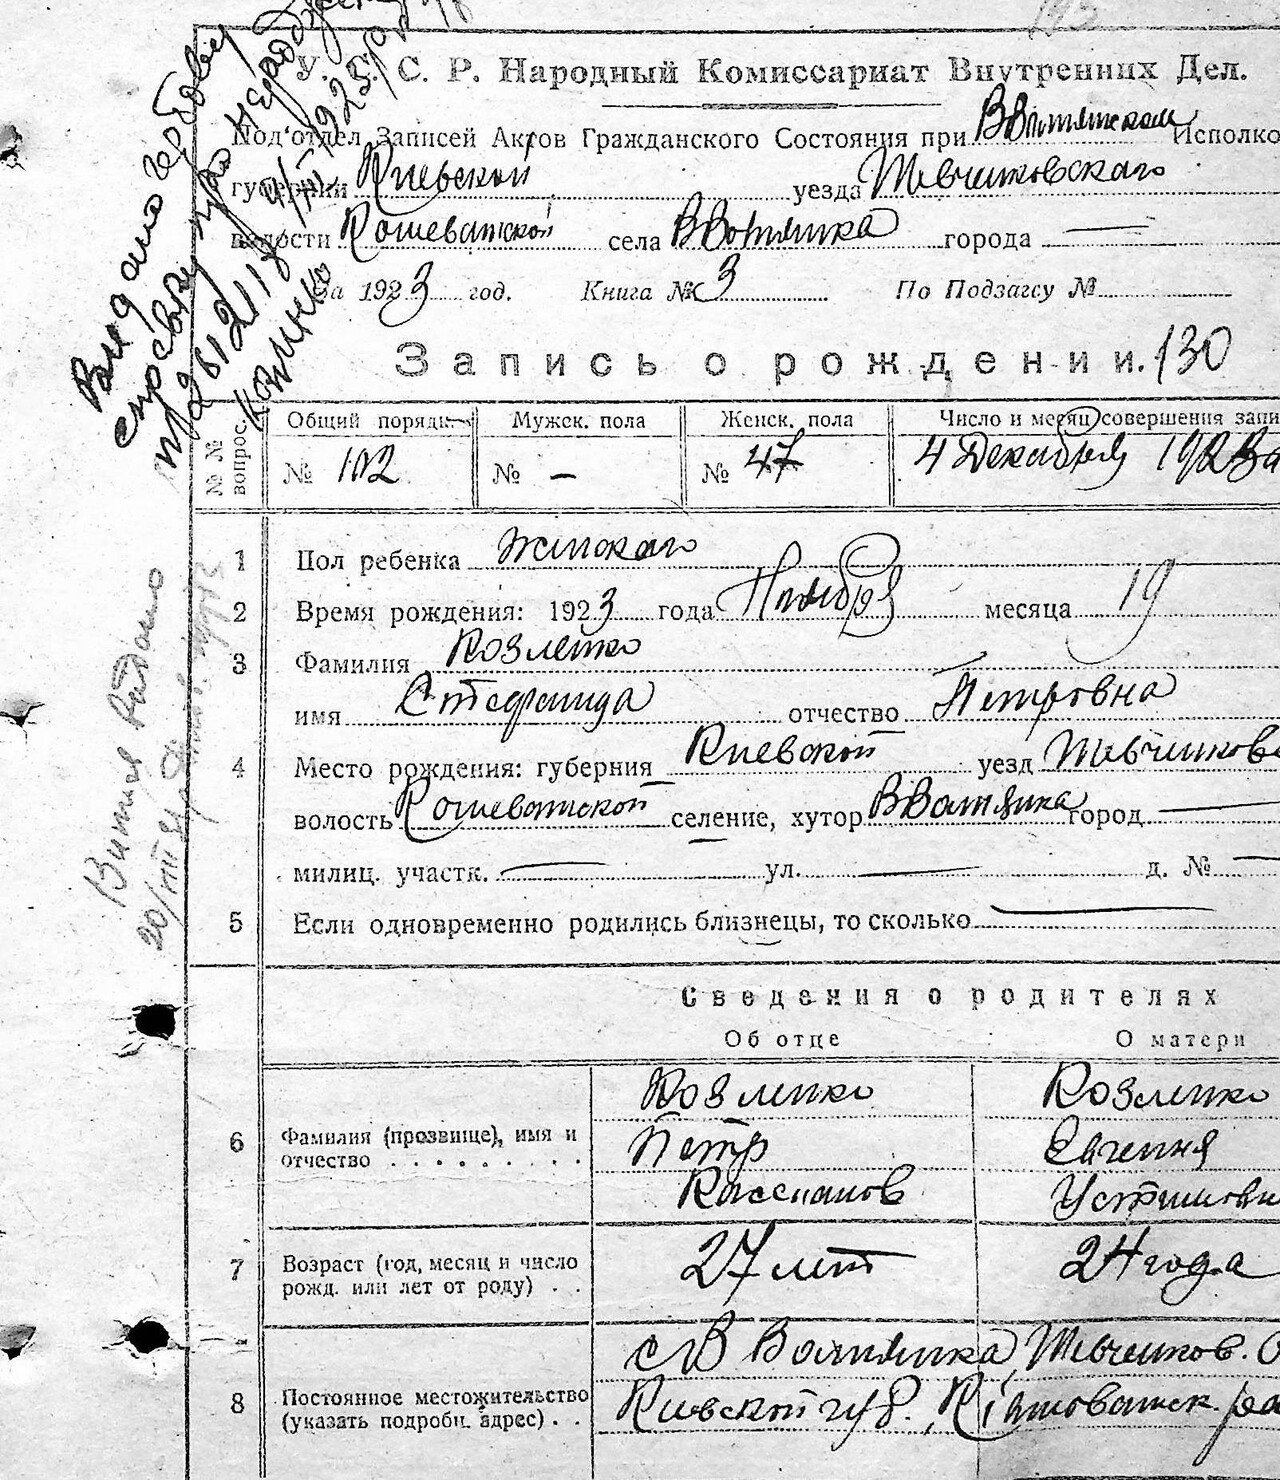 У. С. С. Р. Народный Комиссариат Внутренних Дел.
Под'отдел Записей Актов Гражданского Состояния при ВВотянском Исполко
губернии Киевской уезда Шевченковского
волости Кошеватской села ВВотянка города —
За 1923 год. Книга № 3 По Подзагсу №
Запись о рождении. 130
№ № вопрос.
Общий порядк. Мужск. пола Женск. пола Число и месяц совершения запи
№ 102 № — № 47 4 Декабря 1923
1 Пол ребенка женского
2 Время рождения: 1923 года Ноября месяца 19
3 Фамилия Козленко
имя Стефанида отчество Петровна
4 Место рождения: губерния Киевской уезд Шевченковс
волость Кошеватской селение, хутор ВВотянка город —
милиц. участк. — ул. — д. № —
5 Если одновременно родились близнецы, то сколько —
Сведения о родителях
Об отце О матери
Козленко Козленко
6 Фамилия (прозвище), имя и отчество Петр Евгения
Кассианов Устимовн
7 Возраст (год, месяц и число рожд. или лет от роду) 27 лет 24 года
8 Постоянное местожительство (указать подробн. адрес)
с В Вотянка, Шевченков. О
Киевской губ.,
Видано
справку про
Витяг видано
20/VIII